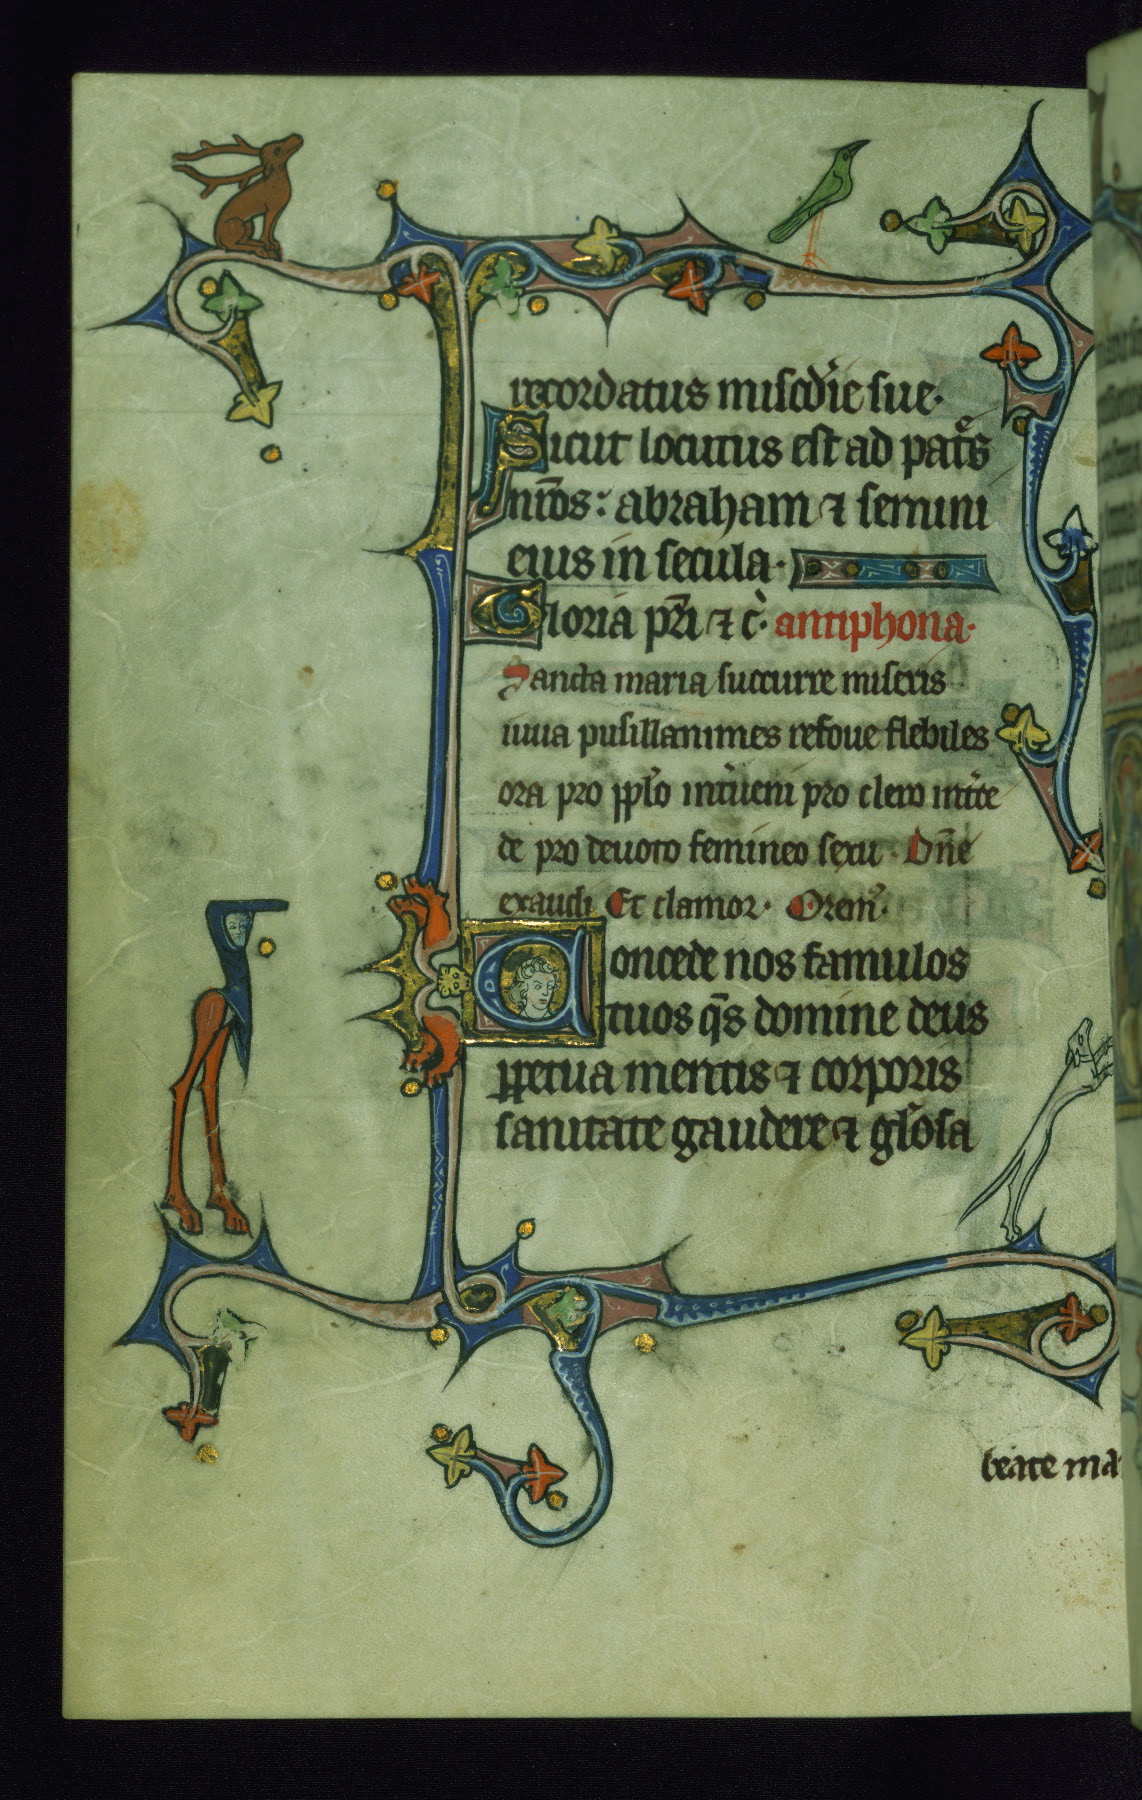 recordatus misc̄die sue·
Sicut locutus est ad pat̄s
nr̄os : abraham ⁊ semini
eius in secula·
Gloria pr̄i ⁊ c̄· antiphona·
Sancta maria succurre miseris
iuua pusillanimes refoue flebiles
ora pro pplo intueni pro clero inte
de pro deuoto femineo sexu · Dn̄e
exaudi Et clamor· Orem·
Concede nos famulos
tuos qs̄ domine deus
ꝑpetua mentis ⁊ corporis
sanitate gaudere ⁊ glosa
beate ma